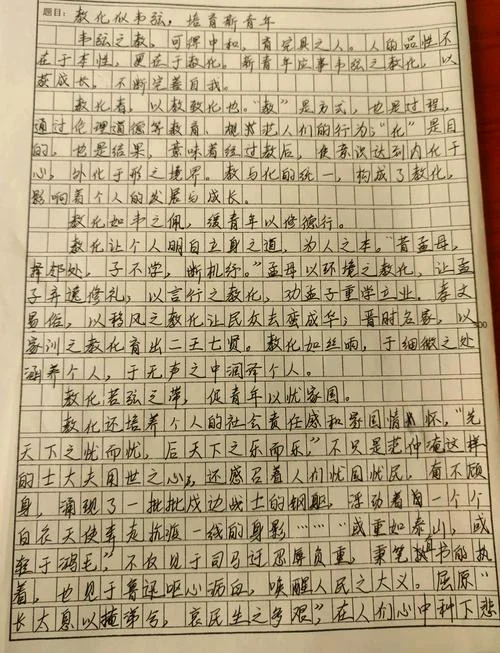 题目：教化似韦弦，培育新青年
韦弦之教，可得中和，育完具之人。人的品性不
在于本性，更在于教化。新青年应事韦弦之教化，以
获成长，不断完善自我。
教化者，以教致化也。“教”是方式，也是过程，
通过伦理道德等教育、规范人们的行为；“化”是目
的，也是结果，意味着经过教后，使意识达到内化于
心，外化于形之境界。教与化的统一，构成了教化，
影响着个人的发展与成长。
教化如韦之佩，缓青年以修德行。
教化让个人明自立身之道，为人之本。“昔孟母，
择邻处，子不学，断机杼。”孟母以环境之教化，让孟
子弃逸修礼，以言行之教化，劝孟子重学立业。孝文
易俗，以移风之教化让民众去蛮成华；晋时名家，以
家训之教化育出二王七贤。教化如丝响，于细微之处
涵养个人，于无声之中润泽个人。
300
教化若弦之带，促青年以忧家国。
教化还培养个人的社会责任感和家国情怀，“先
天下之忧而忧，后天下之乐而乐，”不只是范仲淹这样
的士大夫用世之心，还感召着人们忧国忧民，奋不顾
身，涌现了一批批戍边战士的钢躯，浮动着一个个
白衣天使奔走抗疫一线的身影……“或重如泰山，或
轻于鸿毛，”不仅见于司马迁忍辱负重，秉笔直书的执
着，也见于鲁迅呕心沥血，唤醒人民之大义。屈原“
长太息以掩涕兮，哀民生之多艰”，在人们心中种下悲